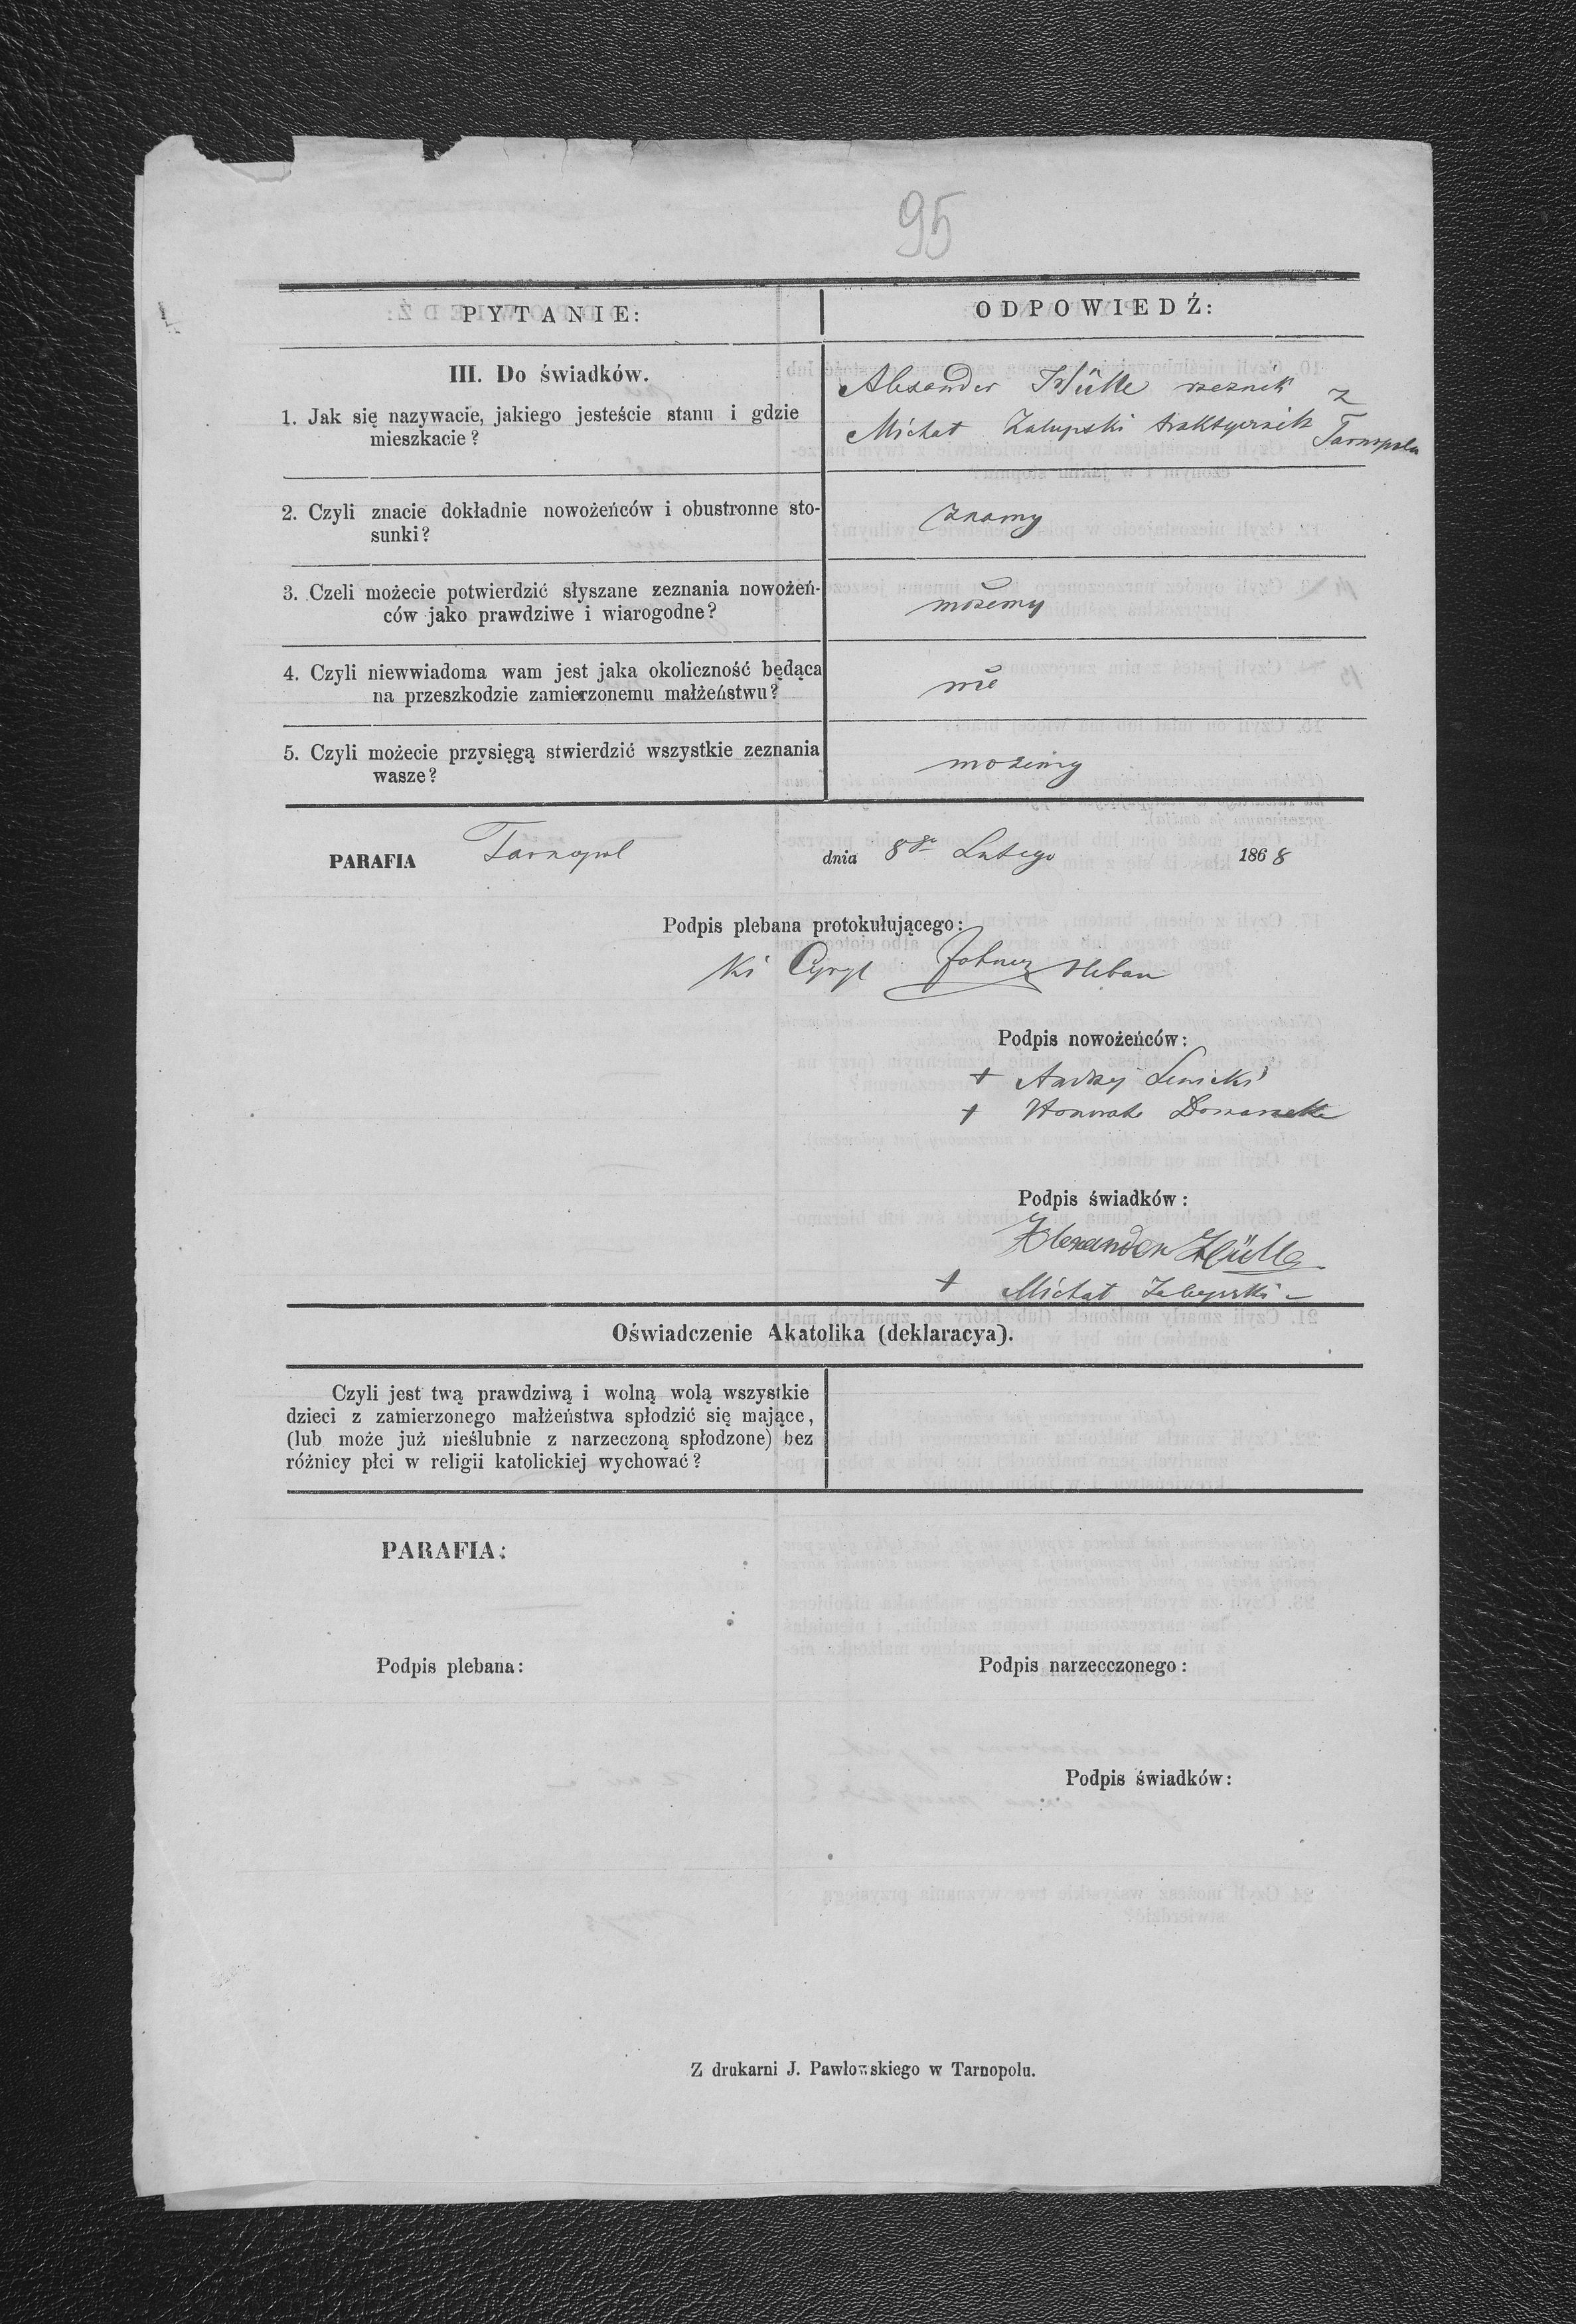 95
PYTANIE:
ODPOWIEDŹ:
III. Do świadków.
1. Jak się nazywacie, jakiego jesteście stanu i gdzie
mieszkacie?
Alexander Hütte rzeznik z
Michał Zalupski traktyernik Tarnopola
2. Czyli znacie dokładnie nowożeńców i obustronne sto-
sunki?
znamy
3. Czeli możecie potwierdzić słyszane zeznania nowożeń-
ców jako prawdziwe i wiarogodne?
możemy
4. Czyli niewwiadoma wam jest jaka okoliczność będąca
na przeszkodzie zamierzonemu małżeństwu?
nie
5. Czyli możecie przysięgą stwierdzić wszystkie zeznania
wasze?
możemy
PARAFIA Tarnopol dnia 8go Lutego 1868
Podpis plebana protokułującego:
Cyryl
Podpis nowożeńców:
+ Andrzej
+ Honorata
Podpis świadków:
Alexander Hütte
+ Michał Zalupski
Oświadczenie Akatolika (deklaracya).
Czyli jest twą prawdziwą i wolną wolą wszystkie
dzieci z zamierzonego małżeństwa spłodzić się mające,
(lub może już nieślubnie z narzeczoną spłodzone) bez
różnicy płci w religii katolickiej wychować?
PARAFIA:
Podpis plebana:
Podpis narzecczonego:
Podpis świadków:
Z drukarni J. Pawłowskiego w Tarnopolu.